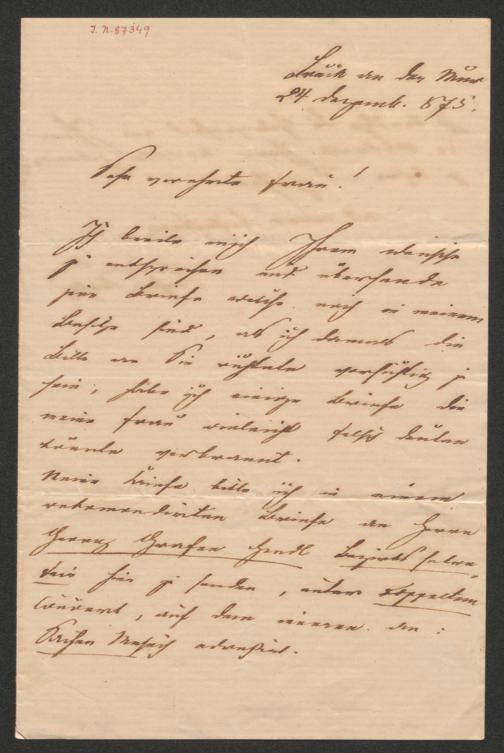 I. N. 87349
Bruck an der Mur
24 Dezemb. 875.
Sehr verehrte Frau!
Ich beeile mich Ihrem Wunsche
zu entsprechen und übersende
jene Briefe welche noch in meinem
Besitze sind, als ich damals die
Bitte an Sie richtete vorsichtig zu
sein; habe ich einige Briefe die
meine Frau vielleicht falsch deuten
könnte verbrannt.
Meine Briefe bitte ich in einem
rekomendirten Briefe an Herrn
Georg Grafen Bezirks
hier zu senden, unter doppeltem
Couvert, auf dem innern an:
adressirt.